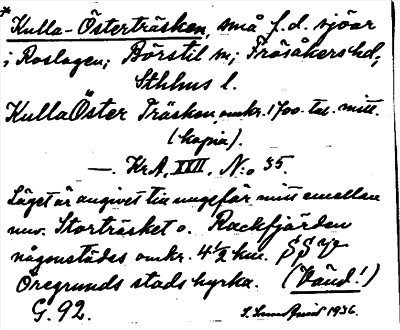 * Kulla-Österträsken, små f.d. sjöar
i Roslagen; Börstil sn; Frösåkers hd;
Sthlms l.
Kulla Öster Träsken, omkr. 1700-tal. mitt.
(kopia).
—. Kr.A, XXII, N:o 35.
Läget är angivet till ungefär mitt emellan
nuv. Storträsket o. Rackfjärden
någonstädes omkr. 4½ km. SSV
Öregrunds stadskyrka. (Vänd!)
G. 92.
1936.